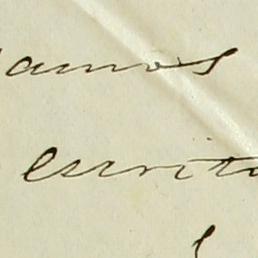 amos
escrito